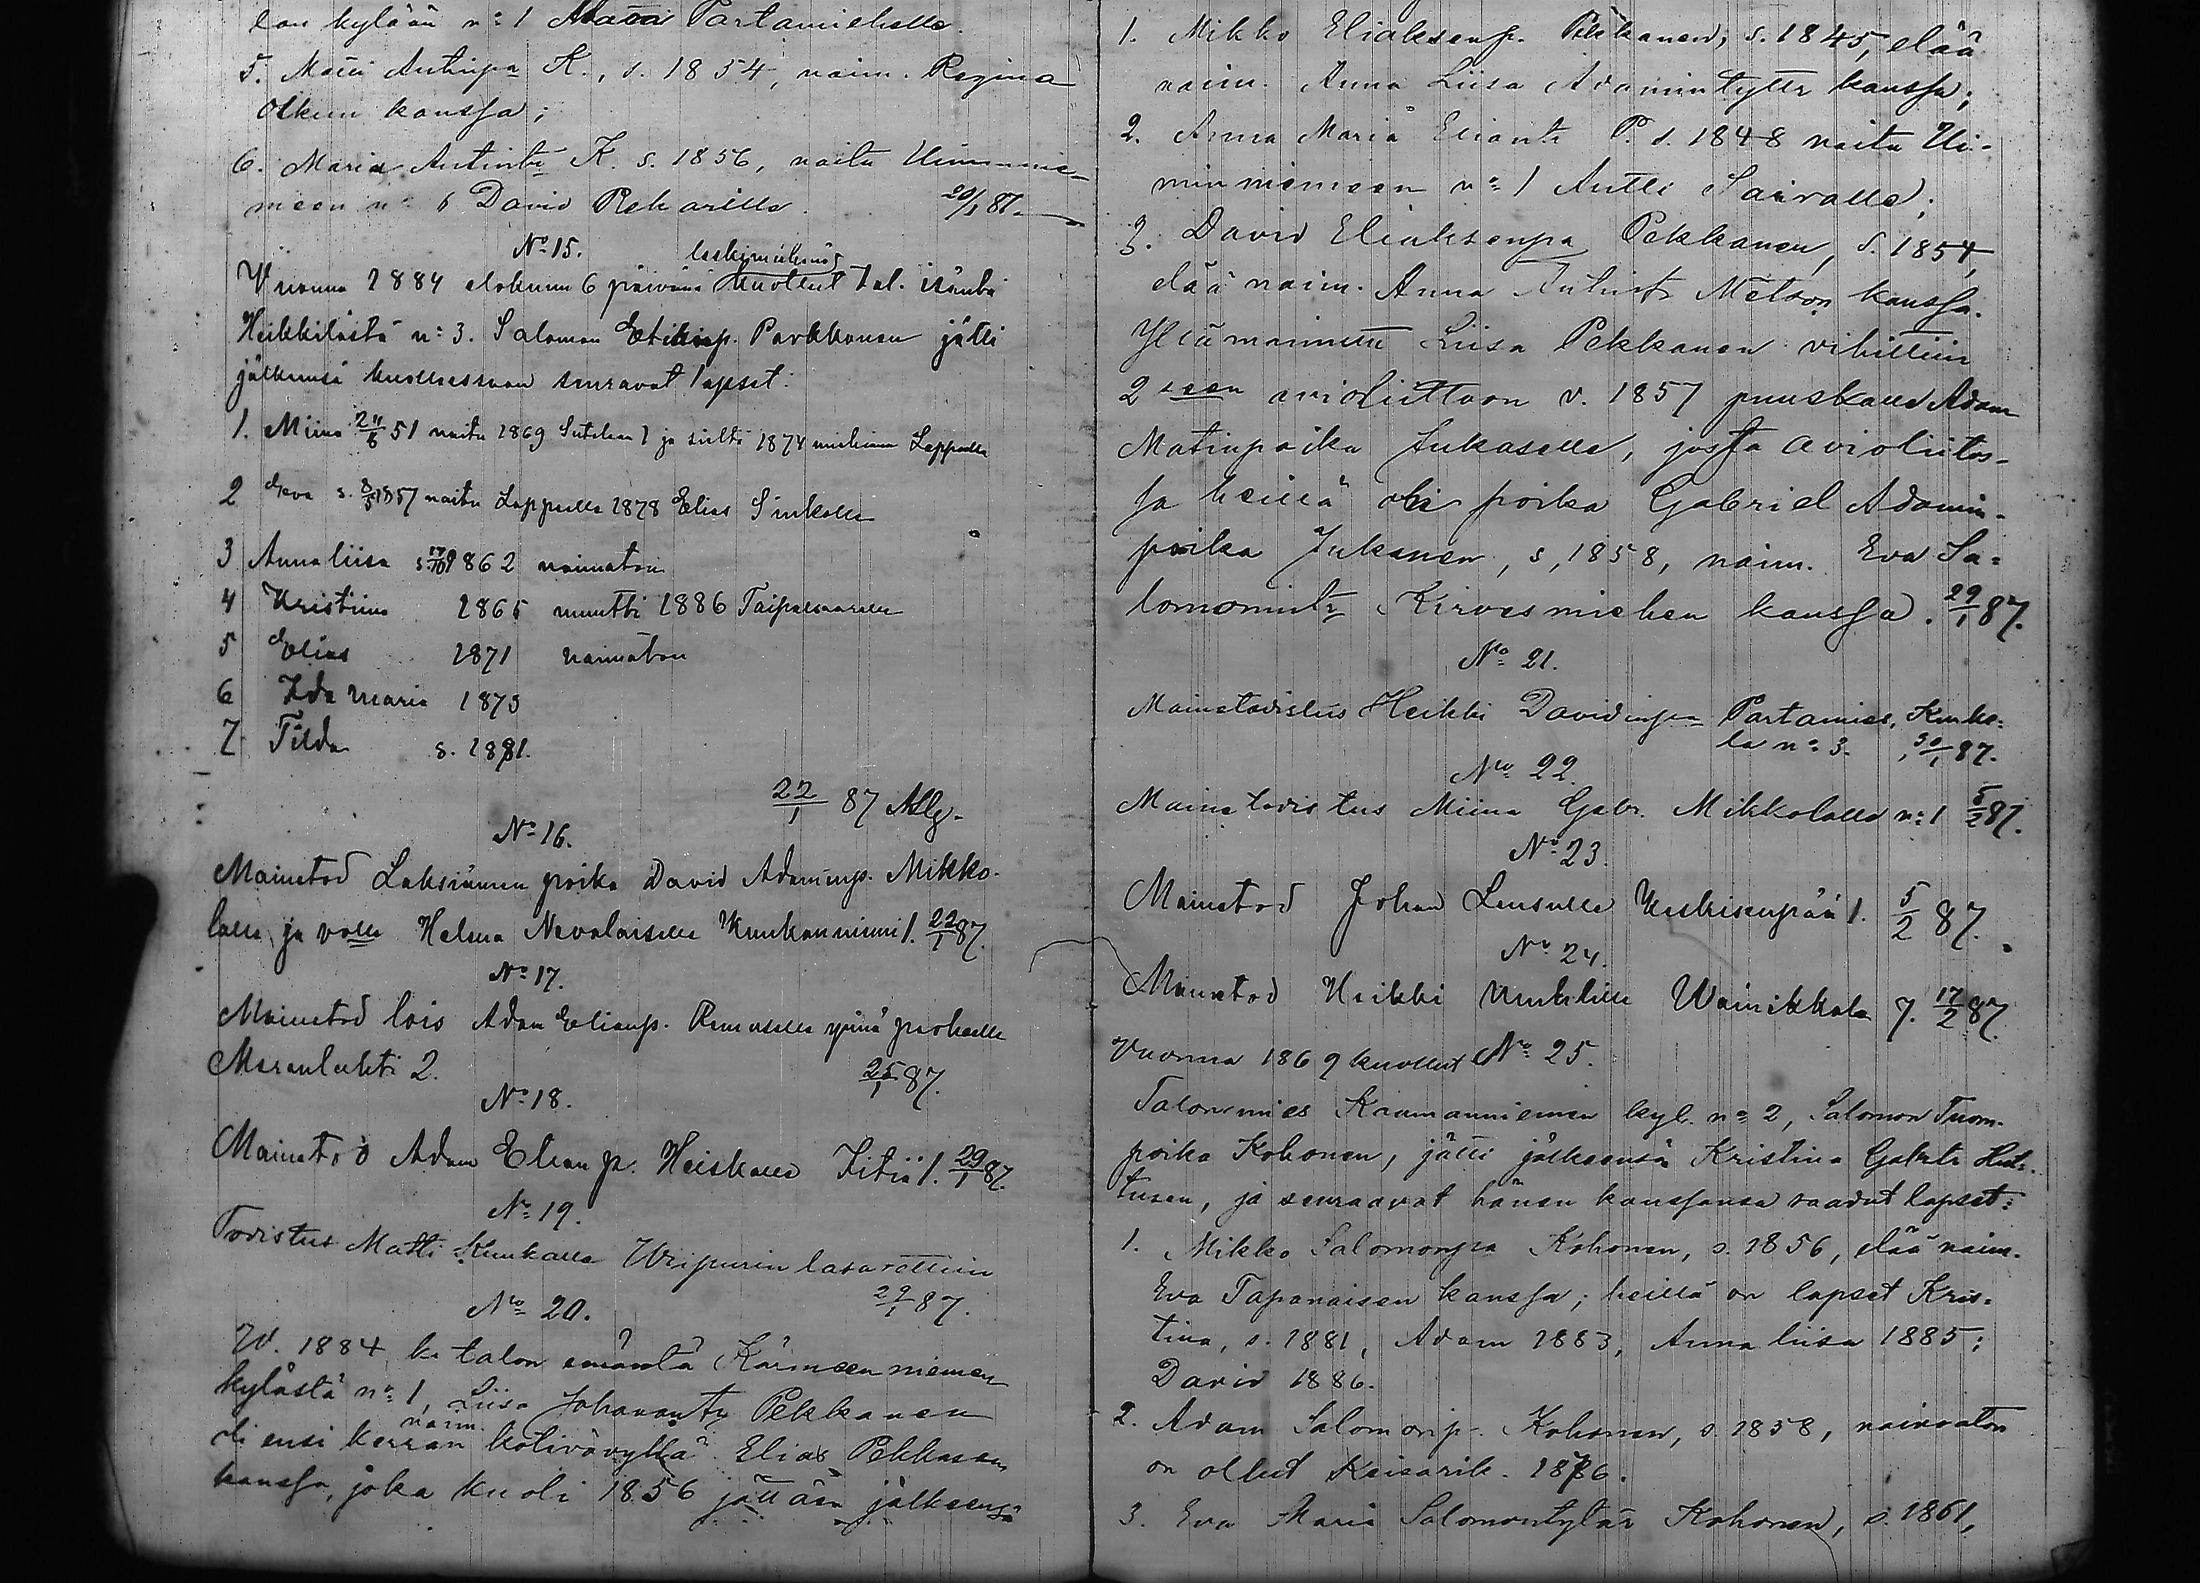 kylään n:o 1 Matti Partamiehelle.
5. Matti Antinpa K., s. 1854, naim. Regina
kanssa;
6. Maria Antintr K. s. 1856, naitu
meen n:o 6 David 20/1 87.
No 15.
leskimiehenä
Vuonna 1884 elokuun 6 päivänä kuollut tal. isäntä
Heikkilästä n:o 3. Salomon Parkkonen jätti
jälkeensä kuollessaan seuravat lapset:
1. Miina 51 naitu 1869 1 ja sieltä 1874
2 Eva s. 1857 naitu Lappeelle 1878 Elias Sinkolle
3 Annaliisa s. 17/10 1862 naimaton
4 Kristiina 1865 muutti 1886 Taipalsaarelle
5 Elias 1871 naimaton
6 Ida Maria 1875
7 Tilda s. 1881.
22/1 87
No 16.
Mainetod poika David Adaminp. Mikko-
lalle ja Helena Nevalaiselle 1. 22/1 87.
No 17.
Mainetod lois Adam Elianp.
2. 25/1 87.
No 18.
Mainetod Adam Elian p. Heiskalle Iitiä 1. 29/1 87.
No 19.
Todistus Matti Kuukalle Wiipurin lasarettiin
29/1 87.
No 20.
W. 1884 k. talon emäntä Kärmeenniemen
kylästä n:o 1, Liisa Johanantr Pekkanen
naim.
oli ensi kerran kotivävyllä Elias Pekkasen
kanssa, joka kuoli 1856 jättäen jälkeensä
1. Mikko Eliaksenp. Pekkanen, s. 1845, elää
naim. Anna Liisa Adamintyttr kanssa;
2. Anna Maria Eliantr P. s. 1848 naitu Ui-
minniemeen n:o 1 Antti
3. David Eliaksenpa Pekkanen, s. 1854,
elää naim. Anna Antintr Metson kanssa.
Yllämainittu Liisa Pekkanen vihittiin
2seen avioliittoon v. 1857 puuskalle Adam
Matinpoika Jukaselle, josta avioliitos-
sa heillä oli poika Gabriel Adamin-
poika Jukanen, s, 1858, naim. Eva Sa-
lomonintr Kirvesmiehen kanssa. 29/1 87.
No 21.
Mainetodistus Heikki Davidinpa Partamies, Kurke-
la n:o 3. 30/1 87.
No 22.
Mainetodistus Miina Gabr. Mikkolalle n:o 1 5/2 87.
No 23.
Mainetod Johan 1. 5/2 87.
No 24.
Mainetod Heikki Wainikkala 7. 17/2 87.
Vuonna 1869 kuollut No 25.
Talonmies kyl. n:o 2, Salomon Tuom.
poika Kohonen, jätti jälkeensä Kristina Gabrtr Hut-
tusen, ja seuraavat hänen kanssansa saadut lapset:
1. Mikko Salomonpa Kohonen, s. 1856, elää naim.
Eva Taponaisen kanssa; heillä on lapset Kris-
tina, s. 1881, Adam 1883, Anna liisa 1885;
David 1886.
2. Adam Salomonp. Kohonen, s. 1858, naimaton
on ollut
3. Eva Maria Salomontytär Kohonen, s. 1861,